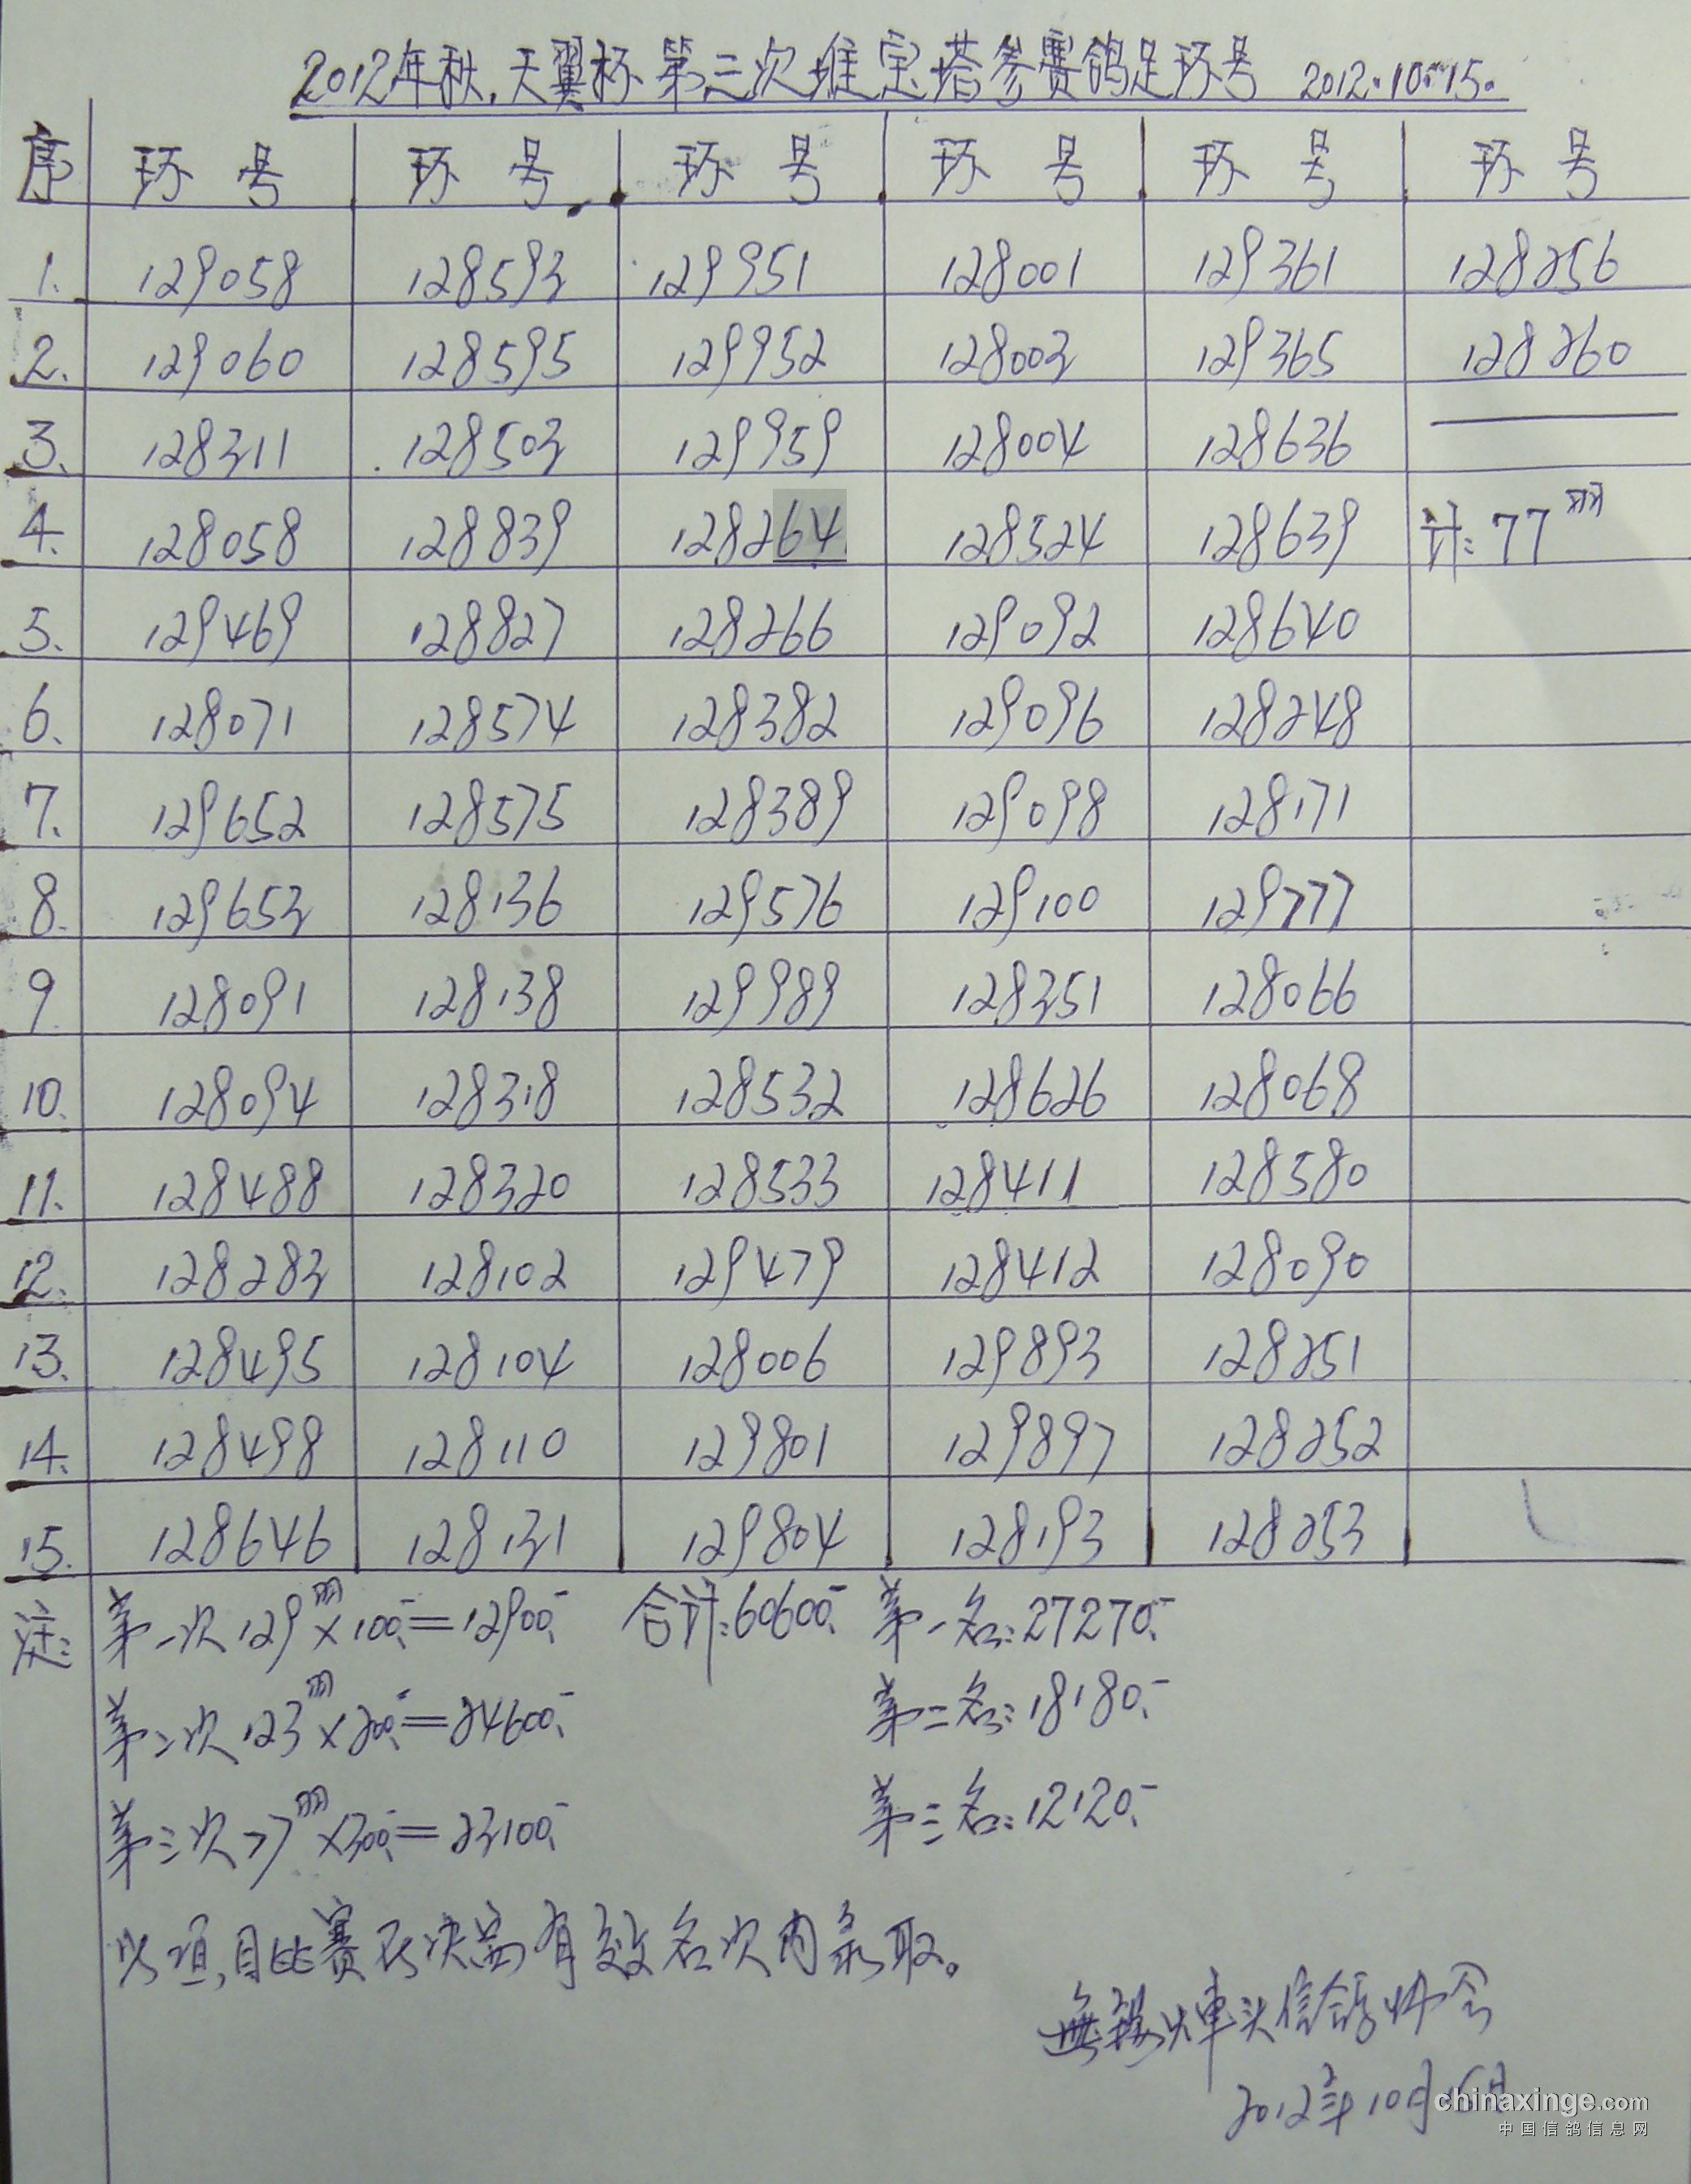 2012年秋.天翼杯第三次堆宝塔参赛鸽足环号 2012.10.15.
序 环号 环号 环号 环号 环号 环号
1. 129058 128593 129951 128001 129361 128256
2. 129060 128595 129952 128003 129365 128260
3. 128311 128503 129959 128004 128636
4. 128058 128839 128264 128524 128639 计:77羽
5. 129469 128827 128266 129092 128640
6. 128071 128574 128382 129096 128248
7. 129652 128575 128389 129098 128171
8. 129653 128136 129576 129100 129777
9. 128091 128138 129989 128351 128066
10. 128094 128318 128532 128626 128068
11. 128488 128320 128533 128411 128580
12. 128283 128102 129479 128412 128090
13. 128495 128104 128006 129893 128251
14. 128498 128110 129801 129897 128252
15. 128646 128131 129804 128193 128253
注: 第一次129羽×100.-=12900.- 合计:60600.- 第一名:27270.-
第二次123羽×200.-=24600.- 第二名:18180.-
第三次77羽×300.-=23100.- 第三名:12120.-
项目比赛在决赛有效名次内录取。
無锡火車头信鸽协会
2012年10月15日
chinaxinge.com
中国信鸽信息网